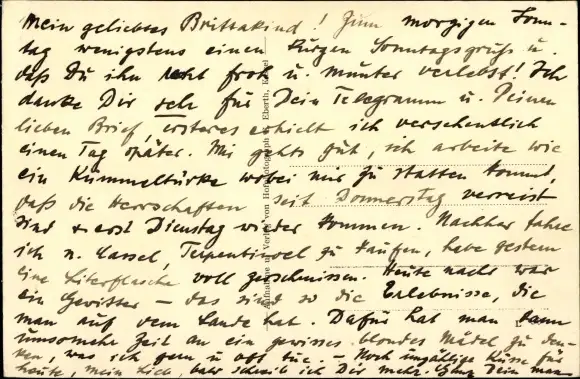 Mein geliebtes Brittakind! Zum morgigen Sonn-
tag wenigstens einen kurzen Sonntagsgruß u.
daß Du ihn recht froh u. munter verlebst! Ich
danke Dir sehr für Dein Telegramm u. Deinen
lieben Brief, ersteres erhielt ich versehentlich
einen Tag später. Mir gehts gut, ich arbeite wie
ein Kümmeltürke wobei mir zu statten kommt,
daß die Herrschaften seit Donnerstag verreist
sind u. erst Dienstag wieder kommen. Nachher fahre
ich n. Cassel, Terpentinoel zu kaufen, habe gestern
eine Literflasche voll zerschmissen. Heute nacht war
ein Gewitter – das sind so die Erlebnisse, die
man auf dem Lande hat. Dafür hat man dann
umsomehr Zeit an ein gewisses blondes Mädel zu den-
ken, was ich gern u. oft tue. – Noch unzählige Küsse für
heute, mein Lieb, bald schreib ich Dir mehr. Dein
Aufnahme u. Verlag von Hofphotograph Eberth, Kassel